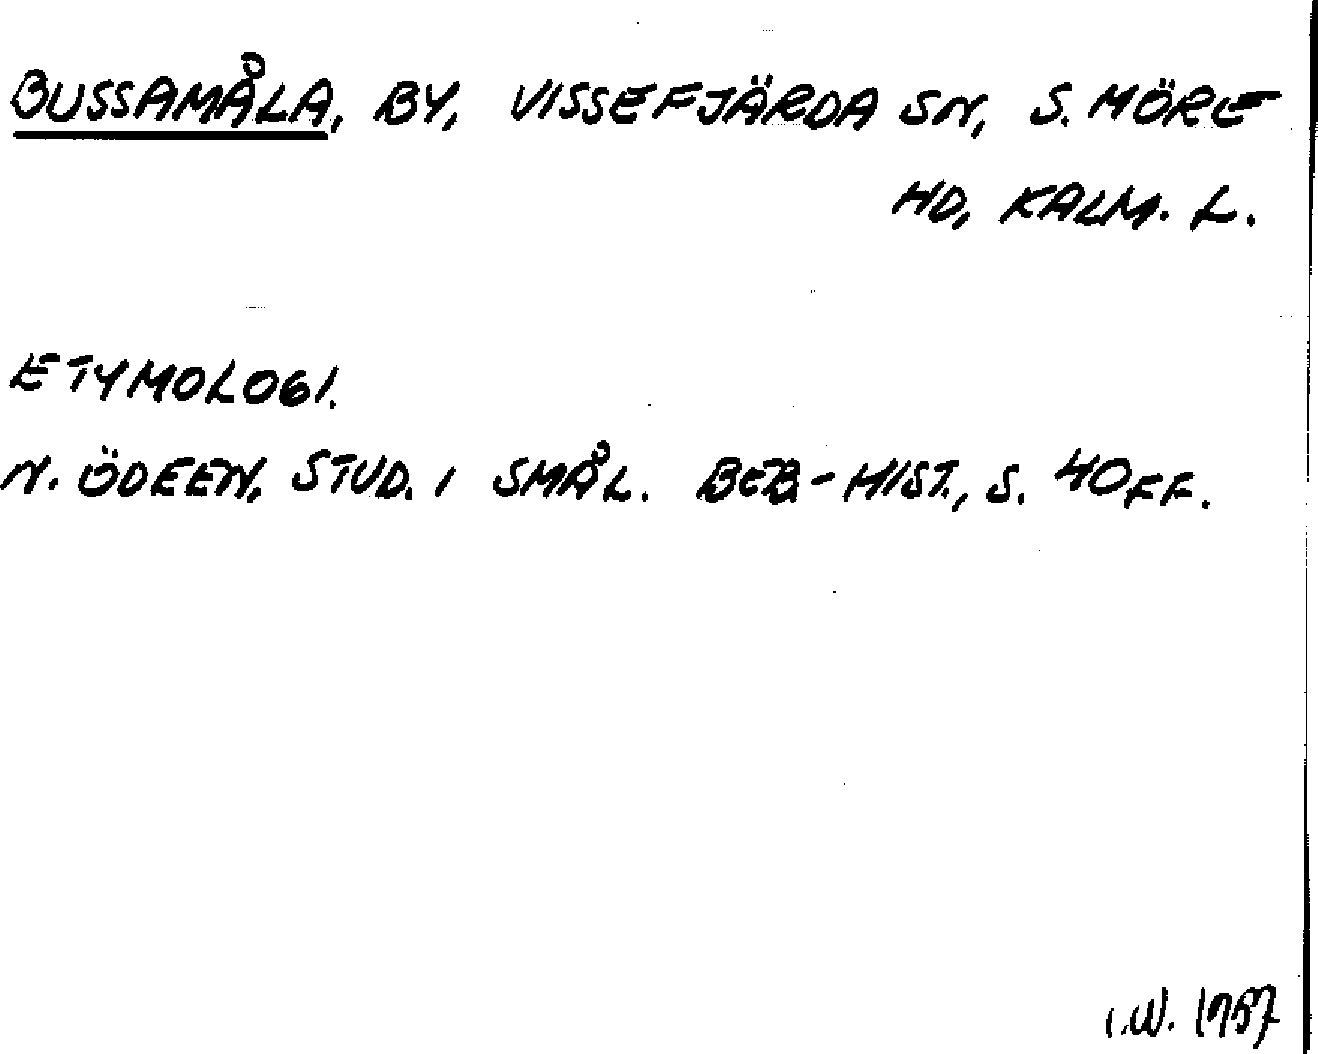 BUSSAMÅLA, BY, VISSEFJÄRDA SN, S. MÖRE
HD, KALM. L.
ETYMOLOGI.
N. ÖDEEN, STUD. I SMÅL. BEB.-HIST., S. 40FF.
I.W.